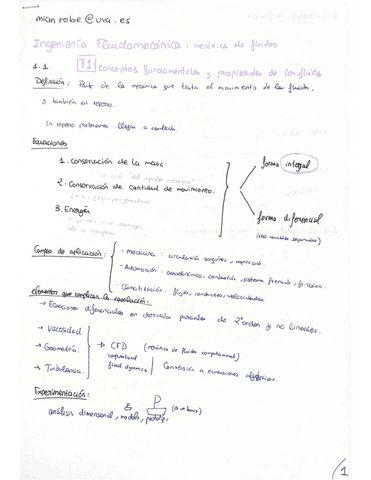 mian robe @ uva . es
Ingeniería Fluidomecánica : mecánica de fluidos
1.1. T1 Conceptos fundamentales y propiedades de los fluidos
Definición : Parte de la mecánica que trata el movimiento de los fluidos.
y también en reposo.
En reposo podremos llegar a
Ecuaciones
1. Conservación de la masa
2. Conservación de cantidad de movimiento.
3. Energía
forma integral
forma diferencial
Campos de aplicación :
- medicina : circulación sanguínea, respiración.
- Automoción : aerodinámica, combustión, sistema frenado, fricción.
- Climatización : flujos, conductos, velocidades
elementos que complican la resolución :
→ Ecuaciones diferenciales en derivadas parciales de 2º orden y no lineales.
→ Viscosidad
→ Geometría
→ Turbulencia
→ CFD (mecánica de fluidos computacional)
computational
fluid dynamics
Conversión a ecuaciones algebraicas.
Experimentación :
análisis dimensional, modelo, prototipo
1